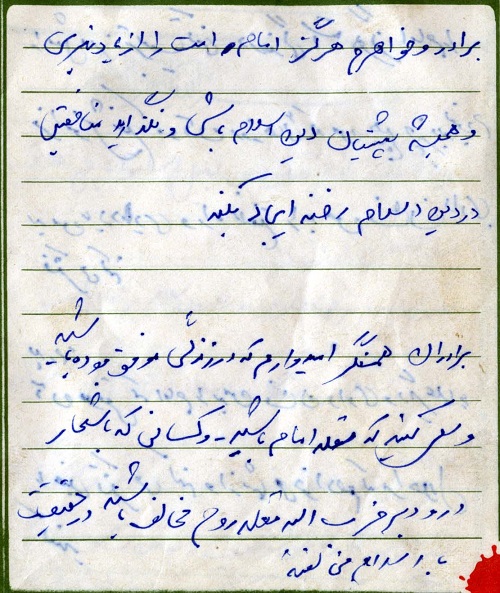 برادر و خواهرم هرگز امام و امت را از یاد نبری
و همیشه پشتیبان دین اسلام باشی و نگذارید منافقین
در دین اسلام رخنه ایجاد بکند
برادران همسنگر امیدوارم که در زندگی موفق بوده باشید
و سعی کنید که مقلد امام باشید - و کسانی که با شعار
درود بر حزب الله مقلد روح مخالف باشند در حقیقت
با اسلام مخالفند